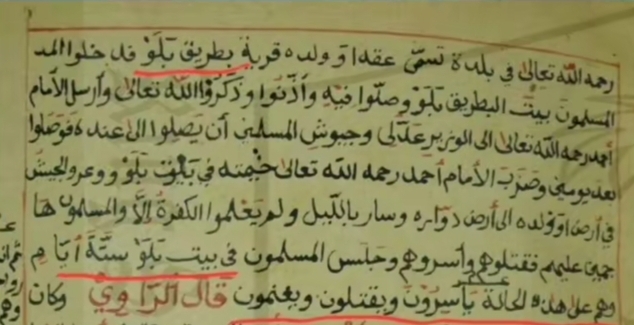 رحمه الله تعالى في بلدة تسمى عقه اوولده قرية بطريق تَلَوْ فدخلوا المد
المسلمون بيت البطريق تَلَوْ وصلّوا فيه وأذّنوا وذكروا الله تعالى وأرسل الأمام
أحمد رحمه الله تعالى الى الوزير عدلى وجيوش المسلمين أن يصلوا الى عنده فوصلوا
بعد يومين وضرب الأمام أحمد رحمه الله تعالى خيمته في تَلَوْ ووعر والجيش
في أرض اوولده الى أرض دواره وسار باللّيل ولم يعلموا الكفرة إلّا والمسلمون ها
جمين عليهم فقتلوهم وأسروهم وجلس المسلمون في بيت تَلَوْ ستّة أيّام
وهم على هذه الحالة يأسرون ويقتلون ويغنمون قال الرّاوي وكان